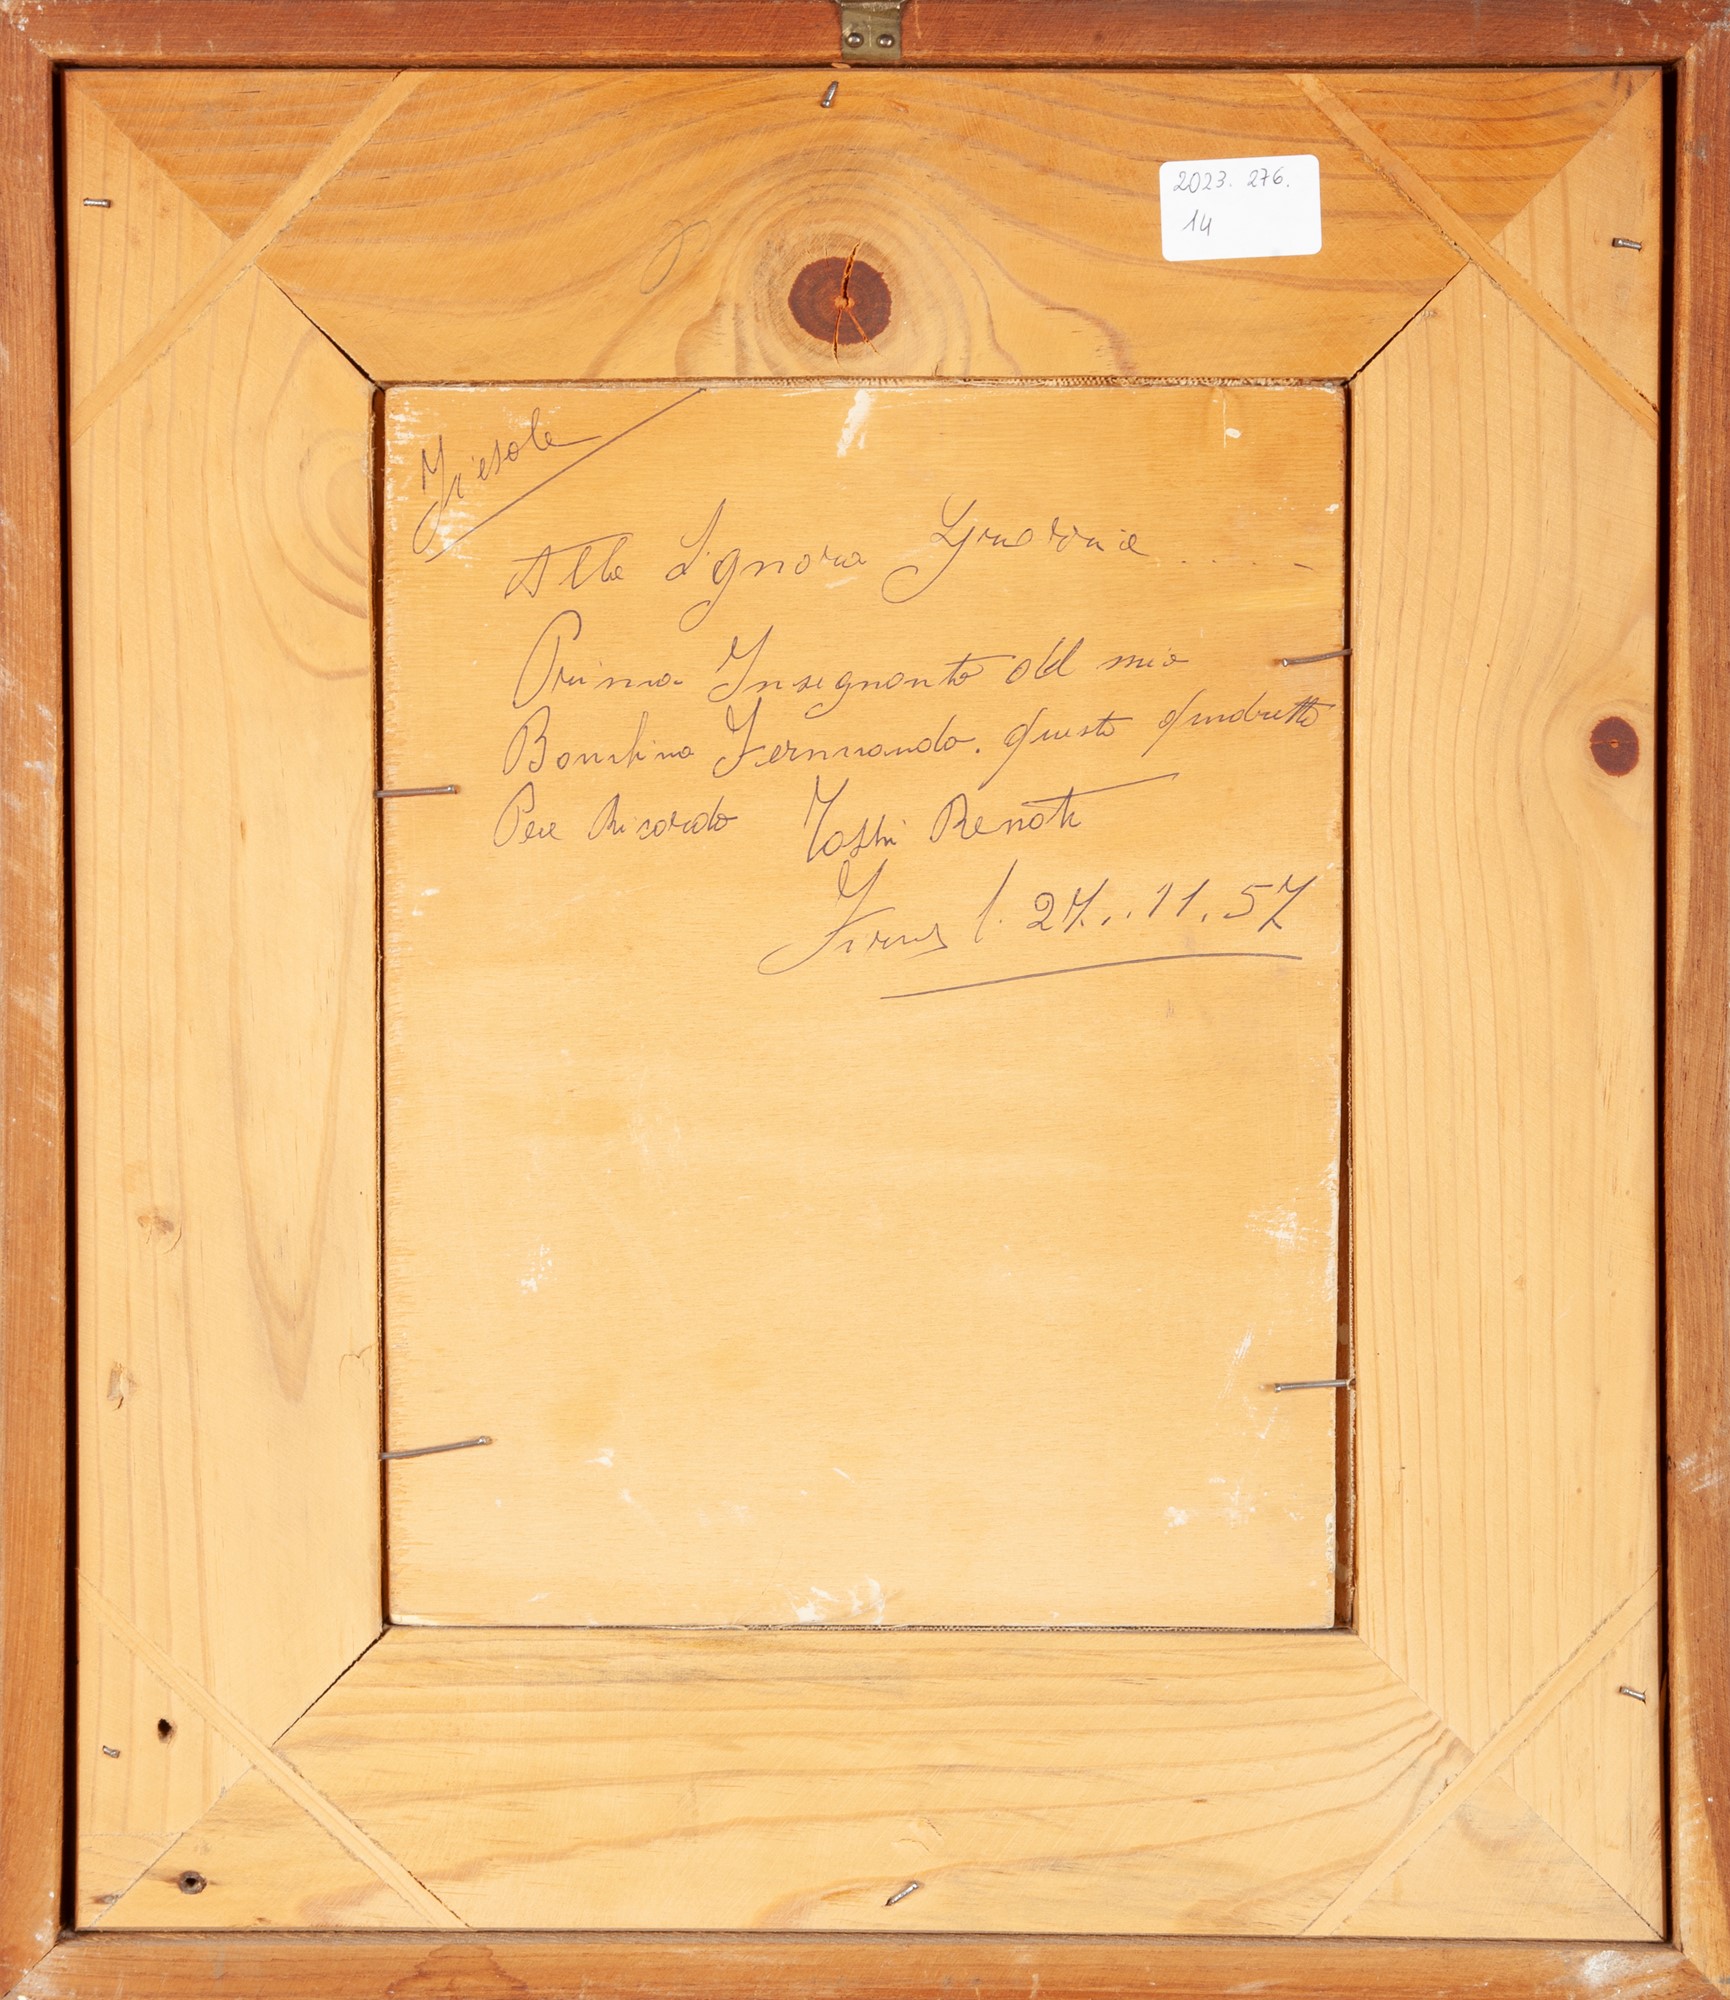 2023. 276.
14
Fiesole
Alla Signora
Prima Insegnante del mio
Bambino Fernando. Questo Quadretto
Per Ricordo Renato
l. 27..11.57